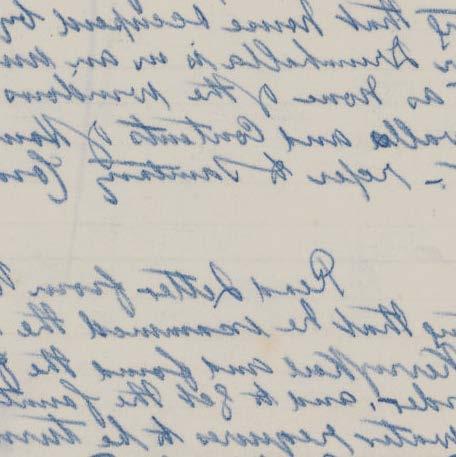 that house occupied by
Drumhalla is in an un
as none of the windows
walls and contents of Hous
- refer to Sanitary Com
Read Letter from
that he examined the
and found the
order, and to get the
water requires to be turn